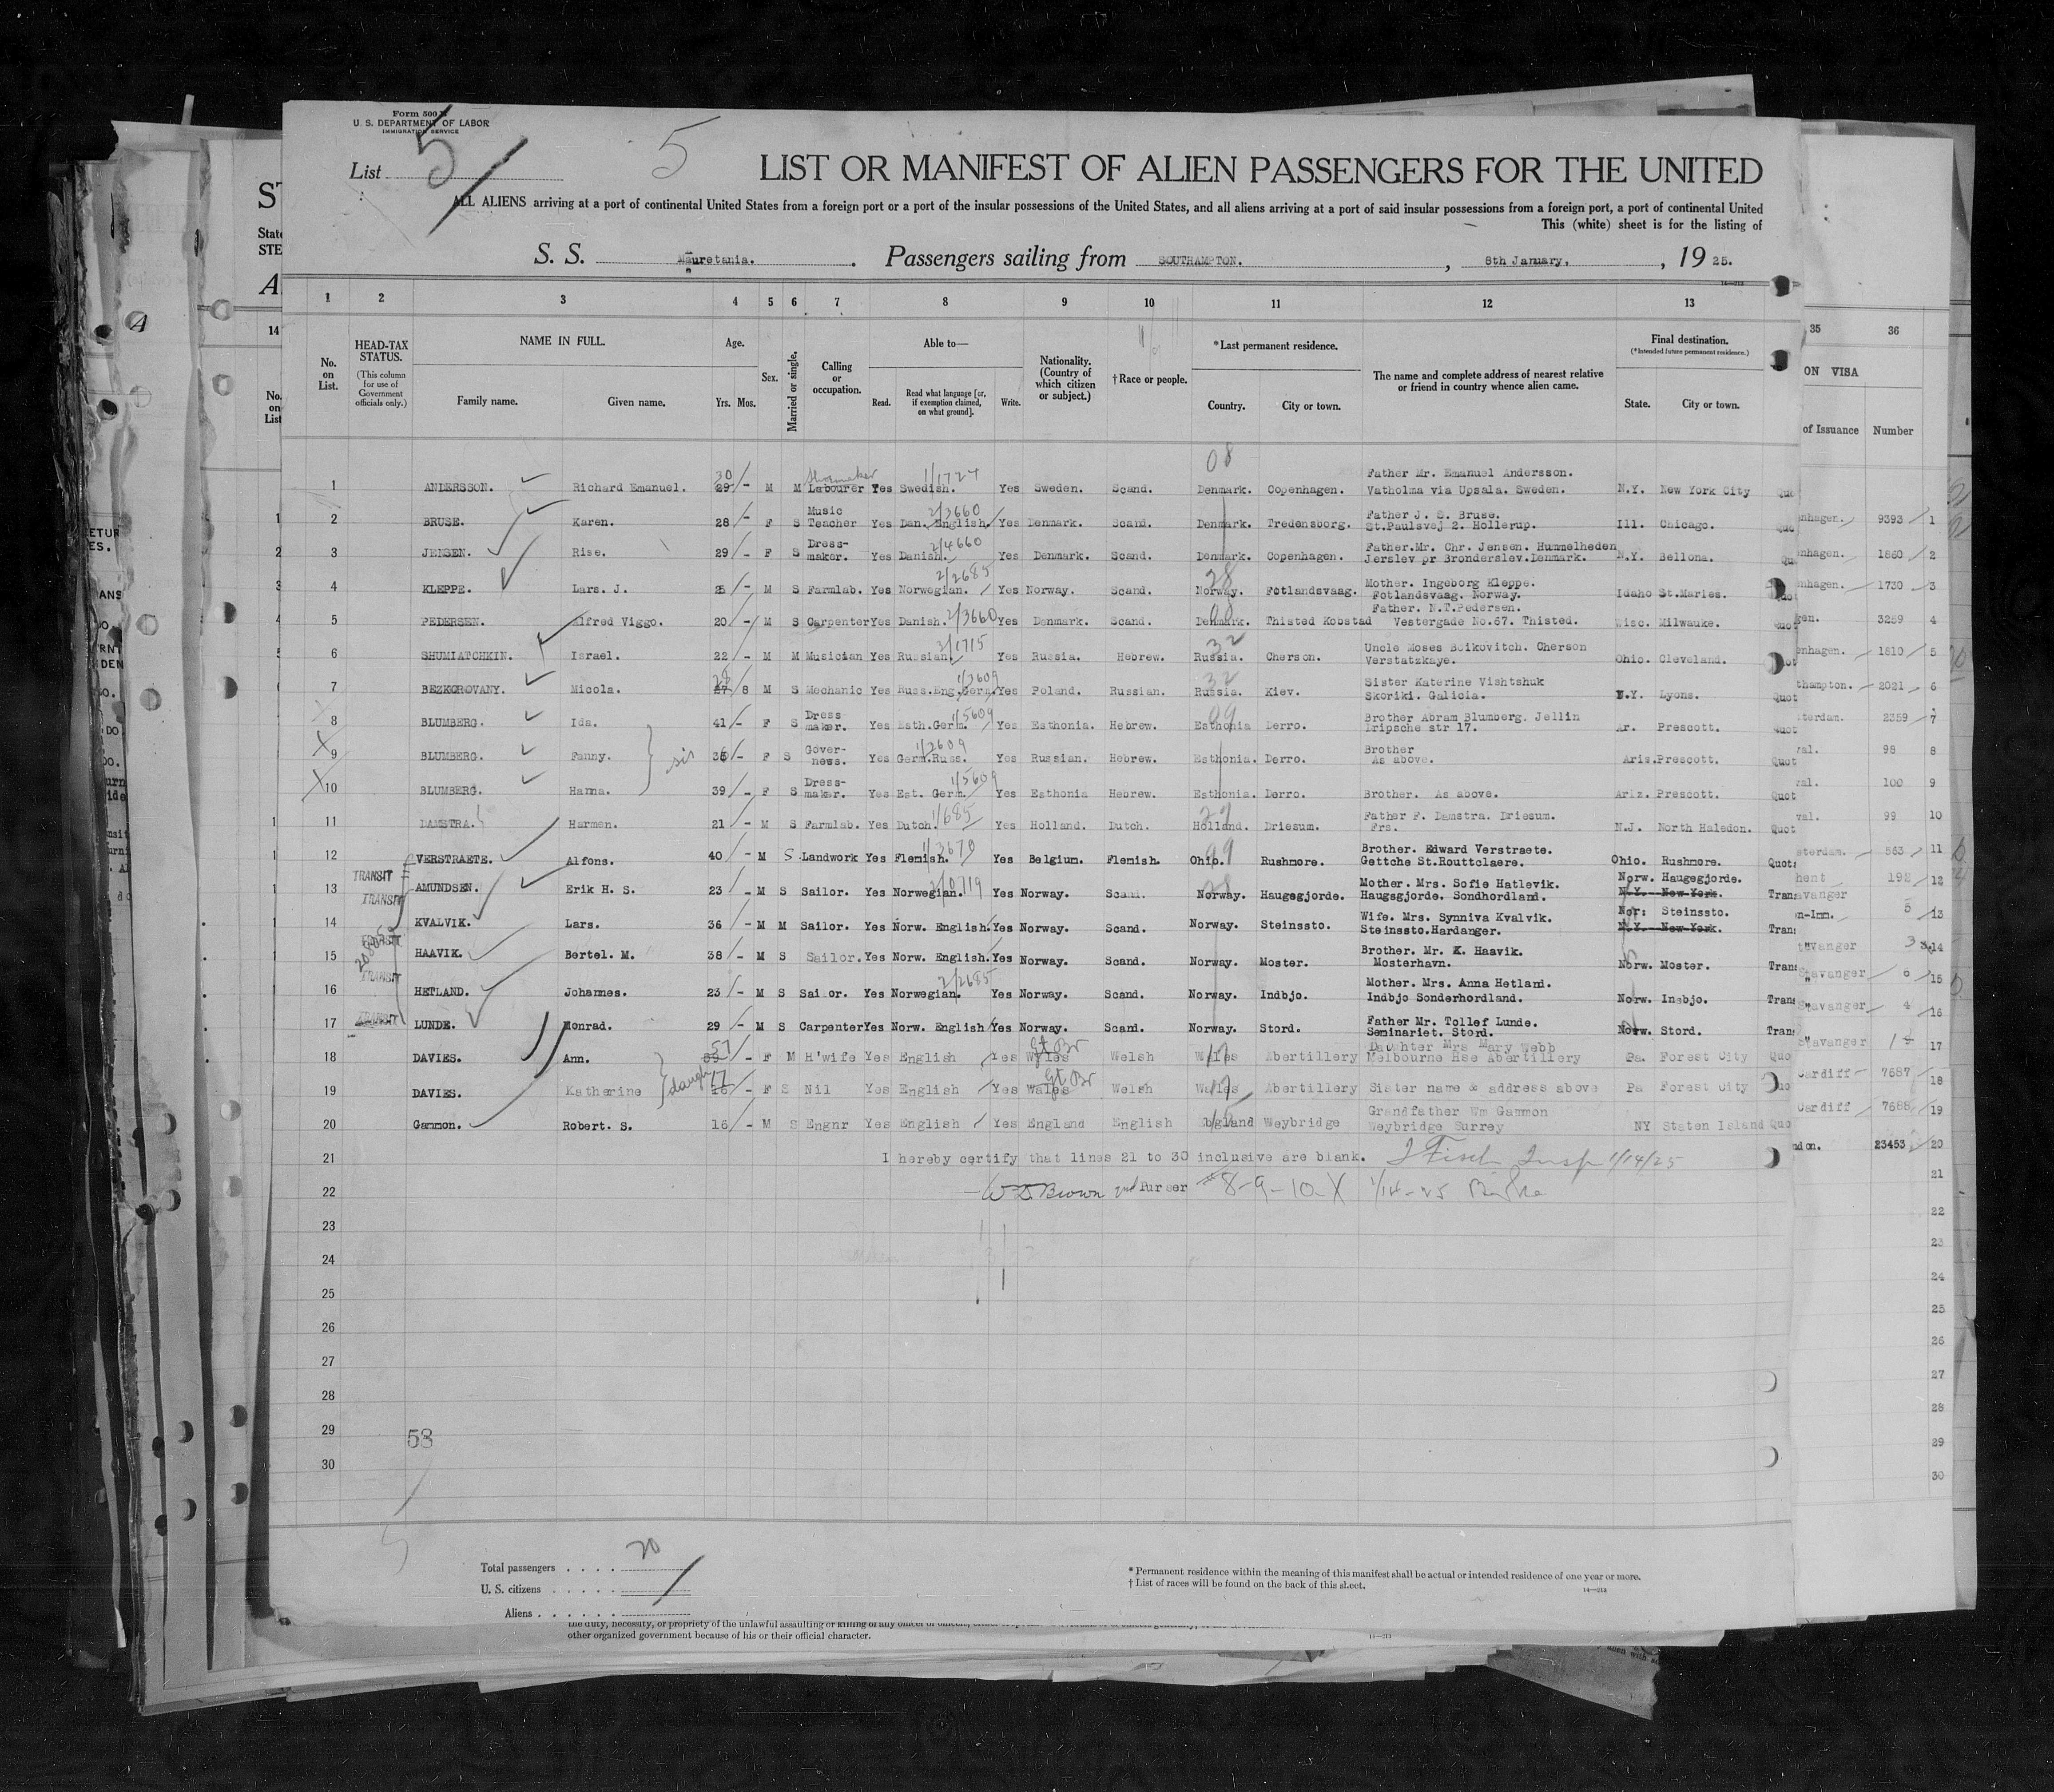 Form 500
U. S. DEPARTMENT OF LABOR
IMMIGRATION SERVICE
List 5
5
LIST OR MANIFEST OF ALIEN PASSENGERS FOR THE UNITED
ALL ALIENS arriving at a port of continental United States from a foreign port or a port of the insular possessions of the United States, and all aliens arriving at a port of said insular possessions from a foreign port, a port of continental United
This (white) sheet is for the listing of
S. S. Mauretania. Passengers sailing from SOUTHAMPTON. , 8th January. , 19 25.
1 2 3 4 5 6 7 8 9 10 11 12 13
No. on List.
HEAD-TAX STATUS. (This column for use of Government officials only.)
NAME IN FULL.
Family name. Given name.
Age.
Yrs. Mos.
Sex.
Married or single.
Calling or occupation.
Able to—
Read. Read what language [or, if exemption claimed, on what ground]. Write.
Nationality. (Country of which citizen or subject.)
†Race or people.
*Last permanent residence.
Country. City or town.
The name and complete address of nearest relative or friend in country whence alien came.
Final destination.
(*Intended future permanent residence.)
State. City or town.
1 ANDERSSON. Richard Emanuel. 30 29 - M M Shoemaker Labourer Yes Swedish. 1/1724 Yes Sweden. Scand. 08 Denmark. Copenhagen. Father Mr. Emanuel Andersson. Vatholma via Upsala. Sweden. N.Y. New York City Quo
2 BRUSE. Karen. 28 - F S Music Teacher Yes Dan. English. 2/3660 Yes Denmark. Scand. Denmark. Fredensborg. Father J. S. Bruse. St.Paulsvej 2. Hollerup. Ill. Chicago. Quo
3 JENSEN. Rise. 29 - F S Dress-maker. Yes Danish. 2/4660 Yes Denmark. Scand. Denmark. Copenhagen. Father.Mr. Chr. Jensen. Hummelheden Jerslev pr Bronderslev.Denmark. N.Y. Bellona. Quo
4 KLEPPE. Lars. J. 25 - M S Farmlab. Yes Norwegian. 2/2685 Yes Norway. Scand. 28 Norway. Fotlandsvaag. Mother. Ingeborg Kleppe. Fotlandsvaag. Norway. Idaho St.Maries. Quo
5 PEDERSEN. Alfred Viggo. 20 - M S Carpenter Yes Danish. 2/3660 Yes Denmark. Scand. 08 Denmark. Thisted Kobstad Father. N.T.Pedersen. Vestergade No.67. Thisted. Wisc. Milwauke. Quo
6 SHUMIATCHKIN. Israel. 22 - M M Musician Yes Russian. 3/1715 Yes Russia. Hebrew. 32 Russia. Cherson. Uncle Moses Boikovitch. Cherson Verstatzkaye. Ohio. Cleveland.
7 BEZKOROVANY. Micola. 28 27 8 M S Mechanic Yes Russ.Eng.Germ. 1/3609 Yes Poland. Russian. 32 Russia. Kiev. Sister Katerine Vishtshuk Skoriki. Galicia. N.Y. Lyons. Quot
8 BLUMBERG. Ida. 41 - F S Dress maker. Yes Esth.Germ. 1/5609 Yes Esthonia. Hebrew. 09 Esthonia Derro. Brother Abram Blumberg. Jellin Dripsche str 17. Ar. Prescott. Quot
X 9 BLUMBERG. Fanny. sis 36 - F S Gover-ness. Yes Germ.Russ. 1/2609 Yes Russian. Hebrew. Esthonia. Derro. Brother As above. Ariz. Prescott. Quot
X 10 BLUMBERG. Hanna. 39 - F S Dress-maker. Yes Est. Germ. 1/5609 Yes Esthonia Hebrew. Esthonia. Derro. Brother. As above. Ariz. Prescott. Quot
11 DAMSTRA. Harmen. 21 - M S Farmlab. Yes Dutch. 1/685 Yes Holland. Dutch. 27 Holland. Driesum. Father F. Damstra. Driesum. Frs. N.J. North Haledon. Quot
12 VERSTRAETE. Alfons. 40 - M S Landwork Yes Flemish. 1/3679 Yes Belgium. Flemish. 99 Ohio. Rushmore. Brother. Edward Verstraete. Gettche St.Routtclaere. Ohio. Rushmore. Quot
TRANSIT
13 AMUNDSEN. Erik H. S. 23 - M S Sailor. Yes Norwegian. Yes Norway. Scand. 28 Norway. Haugsgjorde. Mother. Mrs. Sofie Hatlevik. Haugsgjorde. Sondhordland. Norw. Haugegjorde. N.Y. New York. Tran
TRANSIT
14 KVALVIK. Lars. 36 - M M Sailor. Yes Norw. English. Yes Norway. Scand. Norway. Steinssto. Wife. Mrs. Synniva Kvalvik. Steinssto.Hardanger. Nor: Steinssto. N.Y. New York. Tran
TRANSIT
15 HAAVIK. Bertel. M. 38 - M S Sailor. Yes Norw. English. Yes Norway. Scand. Norway. Moster. Brother. Mr. K. Haavik. Mosterhavn. Norw. Moster. Tran
TRANSIT
16 HETLAND. Johannes. 23 - M S Sailor. Yes Norwegian. 2/2685 Yes Norway. Scand. Norway. Indbjo. Mother. Mrs. Anna Hetland. Indbjo Sonderhordland. Norw. Insbjo. Tran
TRANSIT
17 LUNDE. Konrad. 29 - M S Carpenter Yes Norw. English Yes Norway. Scand. Norway. Stord. Father Mr. Tollef Lunde. Seminariet. Stord. Norw. Stord. Tran
18 DAVIES. Ann. 57 - F M H'wife Yes English Yes Gt Br Wales Welsh Wales Abertillery Daughter Mrs Mary Webb Melbourne Hse Abertillery Pa. Forest City Quo
19 DAVIES. Katherine daugh 17 16 - F S Nil Yes English Yes Gt Br Wales Welsh Wales Abertillery Sister name & address above Pa Forest City Quo
20 Gammon. Robert. S. 16 - M S Engnr Yes English Yes England English 15 England Weybridge Grandfather Wm Gammon Weybridge Surrey NY Staten Island Quo
21 I hereby certify that lines 21 to 30 inclusive are blank. 1/14/25
22 W D Brown 2nd Purser #8-9-10-X 1/14-25
23
24
25
26
27
28
29 58
30
Total passengers . . . . 20
U. S. citizens . . . . .
Aliens . . . . . .
* Permanent residence within the meaning of this manifest shall be actual or intended residence of one year or more.
† List of races will be found on the back of this sheet.
14—213
other organized government because of his or their official character.
ST
State
STE
A
14
No. on List
35 36
ON VISA
of Issuance Number
nhagen. 9393 1
nhagen. 1860 2
nhagen. 1730 3
gen. 3259 4
nhagen. 1810 5
thampton. 2021 6
sterdam. 2359 7
val. 98 8
val. 100 9
val. 99 10
sterdam. 563 11
hent 192 12
avanger 5 13
on-Imm. 3 14
Stavanger 6 15
Stavanger 4 16
Stavanger 17
Cardiff 7687 18
Cardiff 7688 19
ndon. 23453 20
21
22
23
24
25
26
27
28
29
30